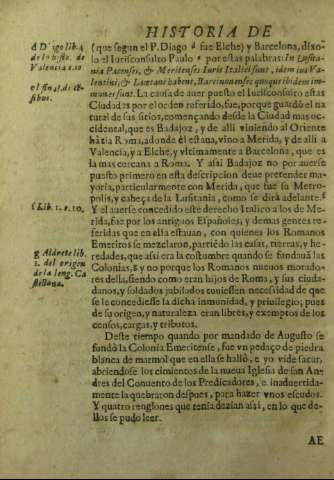 HISTORIA DE
d Diago lib. 4
de la histo. de
Valencia c. 10
e ff. in l. fi. de cē-
sibus.
f Lib. 1. c. 10.
g Aldrete lib.
1. del origen
de la leng. Ca
stellana.
(que segun el P. Diago d fue Elche) y Barcelona, dixo-
lo el Iurisconsulto Paulo e por estas palabras: In Lusita-
nia Pacenses, & Meritenses Iuris Italici sunt, idem ius Va-
lentini, & Lucitani habent, Barcinonenses quoque ibidem im-
munes sunt. La causa de auer puesto el Iurisconsulto estas
Ciudades por el orden referido, fue, porque guardò el na
tural de sus sitios, començando desde la Ciudad mas oc-
cidental, que es Badajoz, y de alli viniendo al Oriente
hàzia Roma, adonde èl estaua, vino a Merida, y de alli a
Valencia, y a Elche, y vltimamente a Barcelona, que es
la mas cercana a Roma. Y assi Badajoz no por auerse
puesto primero en esta descripcion deue pretender ma-
yoria, particularmente con Merida, que fue su Metro-
poli, y cabeça de la Lusitania, como se dirà adelante.
Y el auerse concedido este derecho Italico a los de Me-
rida, fue por los antiguos Españoles, y demas gentes re-
feridas que en ella estauan, con quienes los Romanos
Emeritos se mezclaron, partiēdo las casas, tierras, y he-
redades, que assi era la costumbre quando se fundauā las
Colonias, g y no porque los Romanos nueuos morado-
res della, siendo como eran hijos de Roma, y sus ciuda-
danos, y soldados jubilados tuuiessen necessidad de que
se le concediesse la dicha inmunidad, y priuilegio; pues
de su origen, y naturaleza eran libres, y exemptos de los
censos, cargas, y tributos.
Deste tiempo quando por mandado de Augusto se
fundò la Colonia Emeritense, fue vn pedaço de piedra
blanca de marmol que en ella se hallò, e yo vide sacar,
abriendose los cimientos de la nueua Iglesia de san An-
dres del Conuento de los Predicadores, e inaduertida-
mente la quebraron despues, para hazer vnos escudos.
Y quatro renglones que tenia dezian assi, en lo que de-
llos se pudo leer.
AE